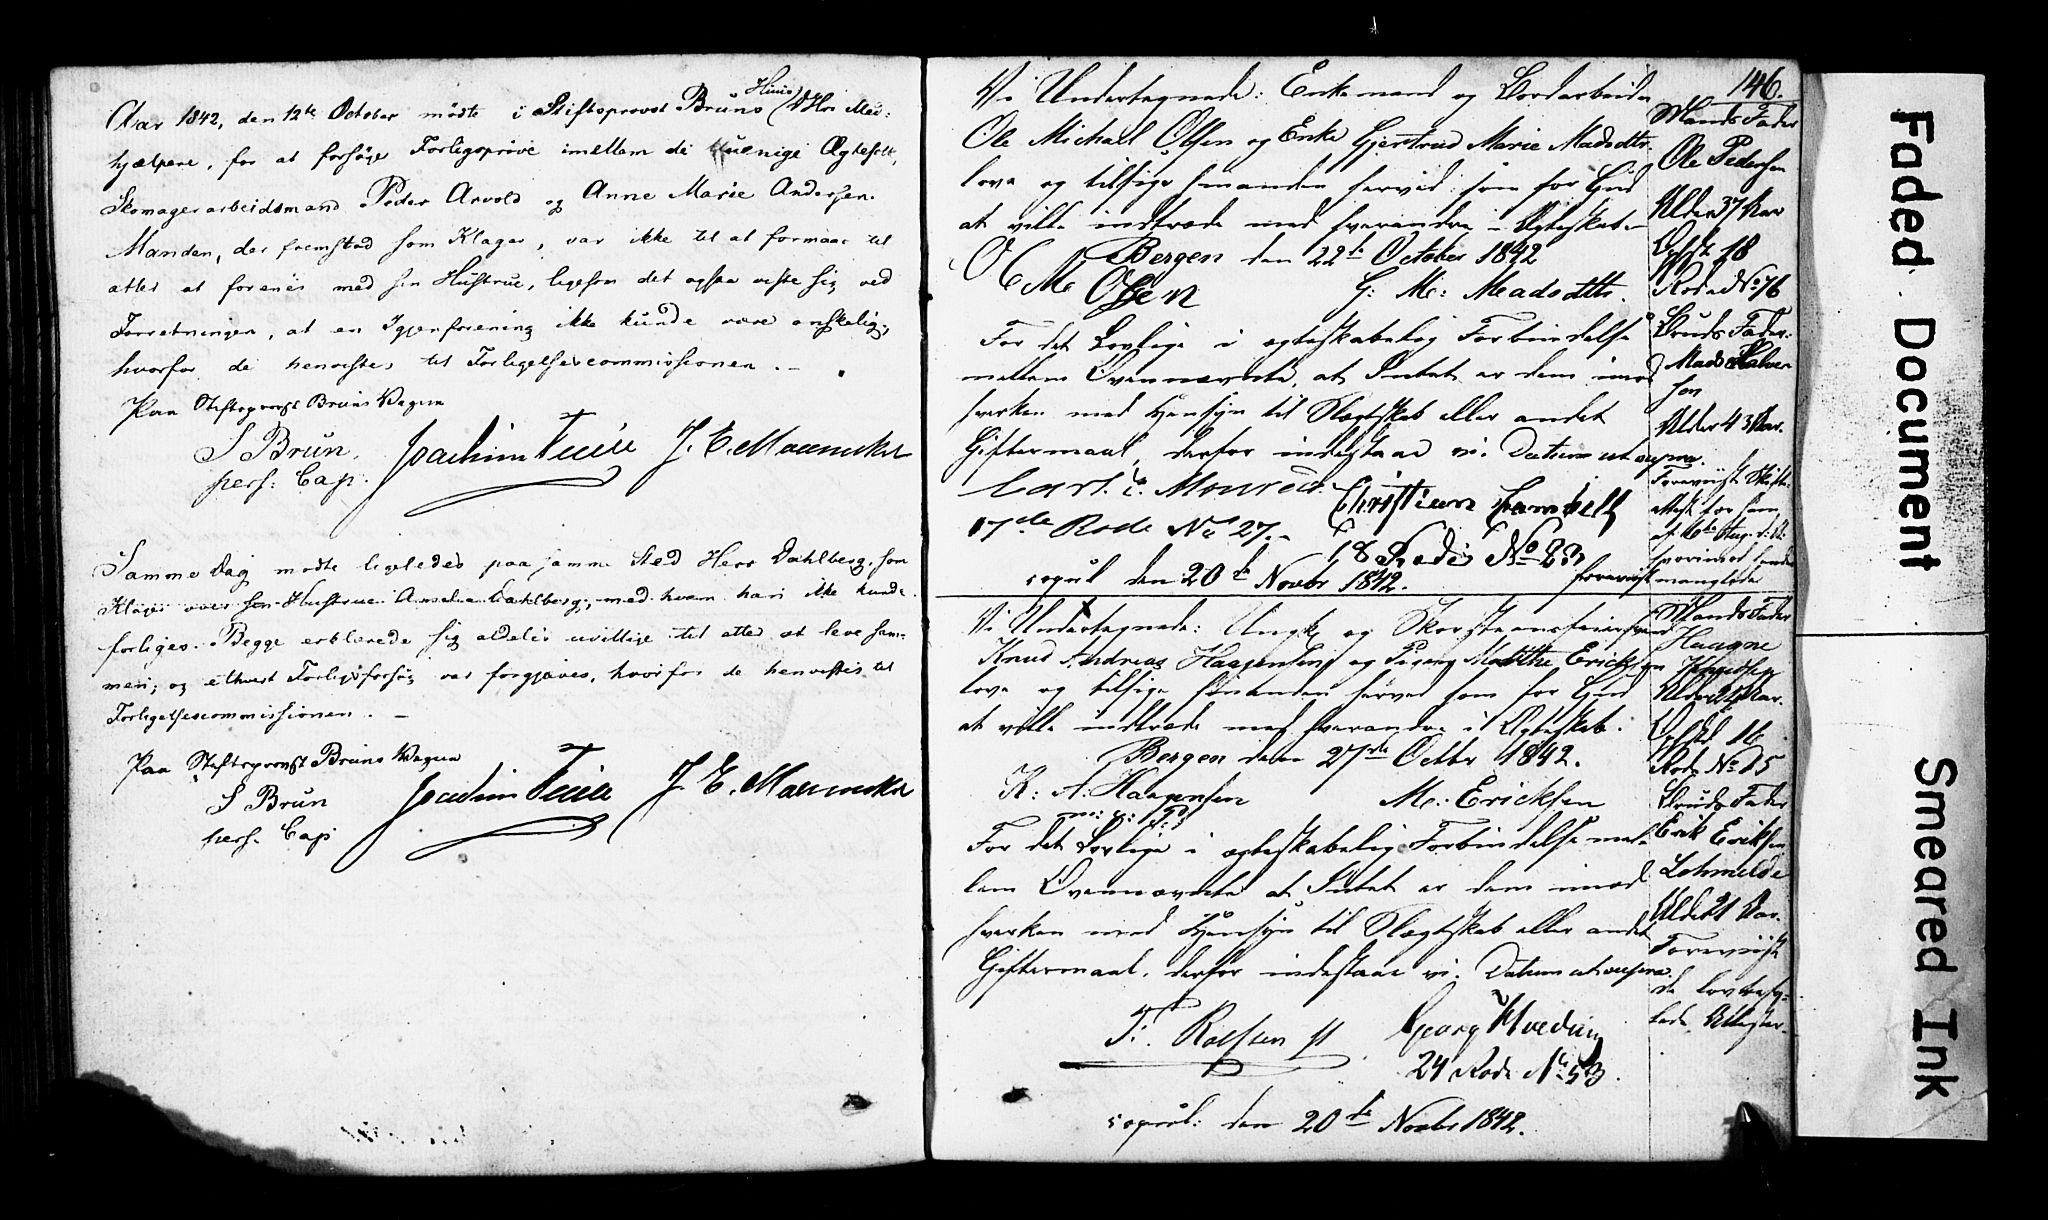 Aar 1842, den 12te October mödte i Stiftsprovst Bruns Huus D'Hrr Med:
hjælpere, for at forsöge Forligspröve imellem de uenige Ægtefolk,
Skomagerarbeidsmand Peder Arvold og Anne Marie Andersen.
Manden, der fremstod som Klager, var ikke til at formaae til
atter at forenes med sin Hustrue, ligesom det ogsaa viste sig ved
Forretningen, at en Igjenforening ikke kunde være önskelig;
hvorfor de henvistes til Forligelsescommissionen. —
Paa Stiftsprovst Bruns Vegne
S Brun, Joachim Friele J. E. Mowinckel
pers: Cap.
Samme Dag mödte ligeledes paa samme Sted Herr Dahlberg, som
Klager over sin Hustrue Amalia Dahlberg, med hvem han ikke kunde
forliges. Begge erklærede sig aldeles uvillige til atter at leve sam-
men; og ethvert Forligsforsög var forgjæves, hvorfor de henvistes til
Forligelsescommissionen. —
Paa Stiftsprovst Bruns Vegne
S Brun Joachim Friele J. E. Mowinckel
pers. Cap:
146.
Vi Undertegnede: Enkemand og Bordarbeider
Ole Michael Olsen og Enke Gjertrud Marie Madsdtr.
love og tilsige hinanden herved som for Gud
at ville indtræde med hverandre i Ægteskab.
Bergen den 22de October 1842
O M Olsen G: M: Madsdtr.
For det Lovlige i ægteskabelig Forbindelse
mellem Ovennævnte, at Intet er dem imod
hverken med Hensyn til Slægtskab eller andet
Giftermaal, derfor indestaae vi. Datum ut supra.
Carl C. Monrad. Christian
17de Rode No 27. 18 Rode No 23
copul den 20de Novbr 1842.
Mands Fader
Ole Pedersen
Alder 37 Aar
Rode No 76
Bruds Fader:
Mads Halvor
sen
Alder 43 Aar.
Foreviist Skifte-
attest for ham
foreviist manglede
Vi Undertegnede: Ungk. og Skorsteensfeiersvend
Knud Andreas Haagensen og Pigen Marthe Ericksen
love og tilsige hinanden herved som for Gud
at ville indtræde med hverandre i Ægteskab.
Bergen den 27de Octbr 1842.
K: A: Haagensen M: Ericksen
m: p: P:
For det Lovlige i ægteskabelig Forbindelse mel-
lem Ovennævnte at Intet er dem imod
hverken med Hensyn til Slægtskab eller andet
Giftermaal, derfor indestaae vi. Datum ut supra.
T. Rolfsen Georg
24 Rode No 53.
copul: den 20de Novbr 1842.
Mands Fader
Haagne
Alder 21 Aar.
Rode No 15
Bruds Fader
Erik Eriksen
Lohmelde
Alder 21 Aar.
Foreviist
de lovbefa-
lede Attester.
Faded Document
Smeared Ink